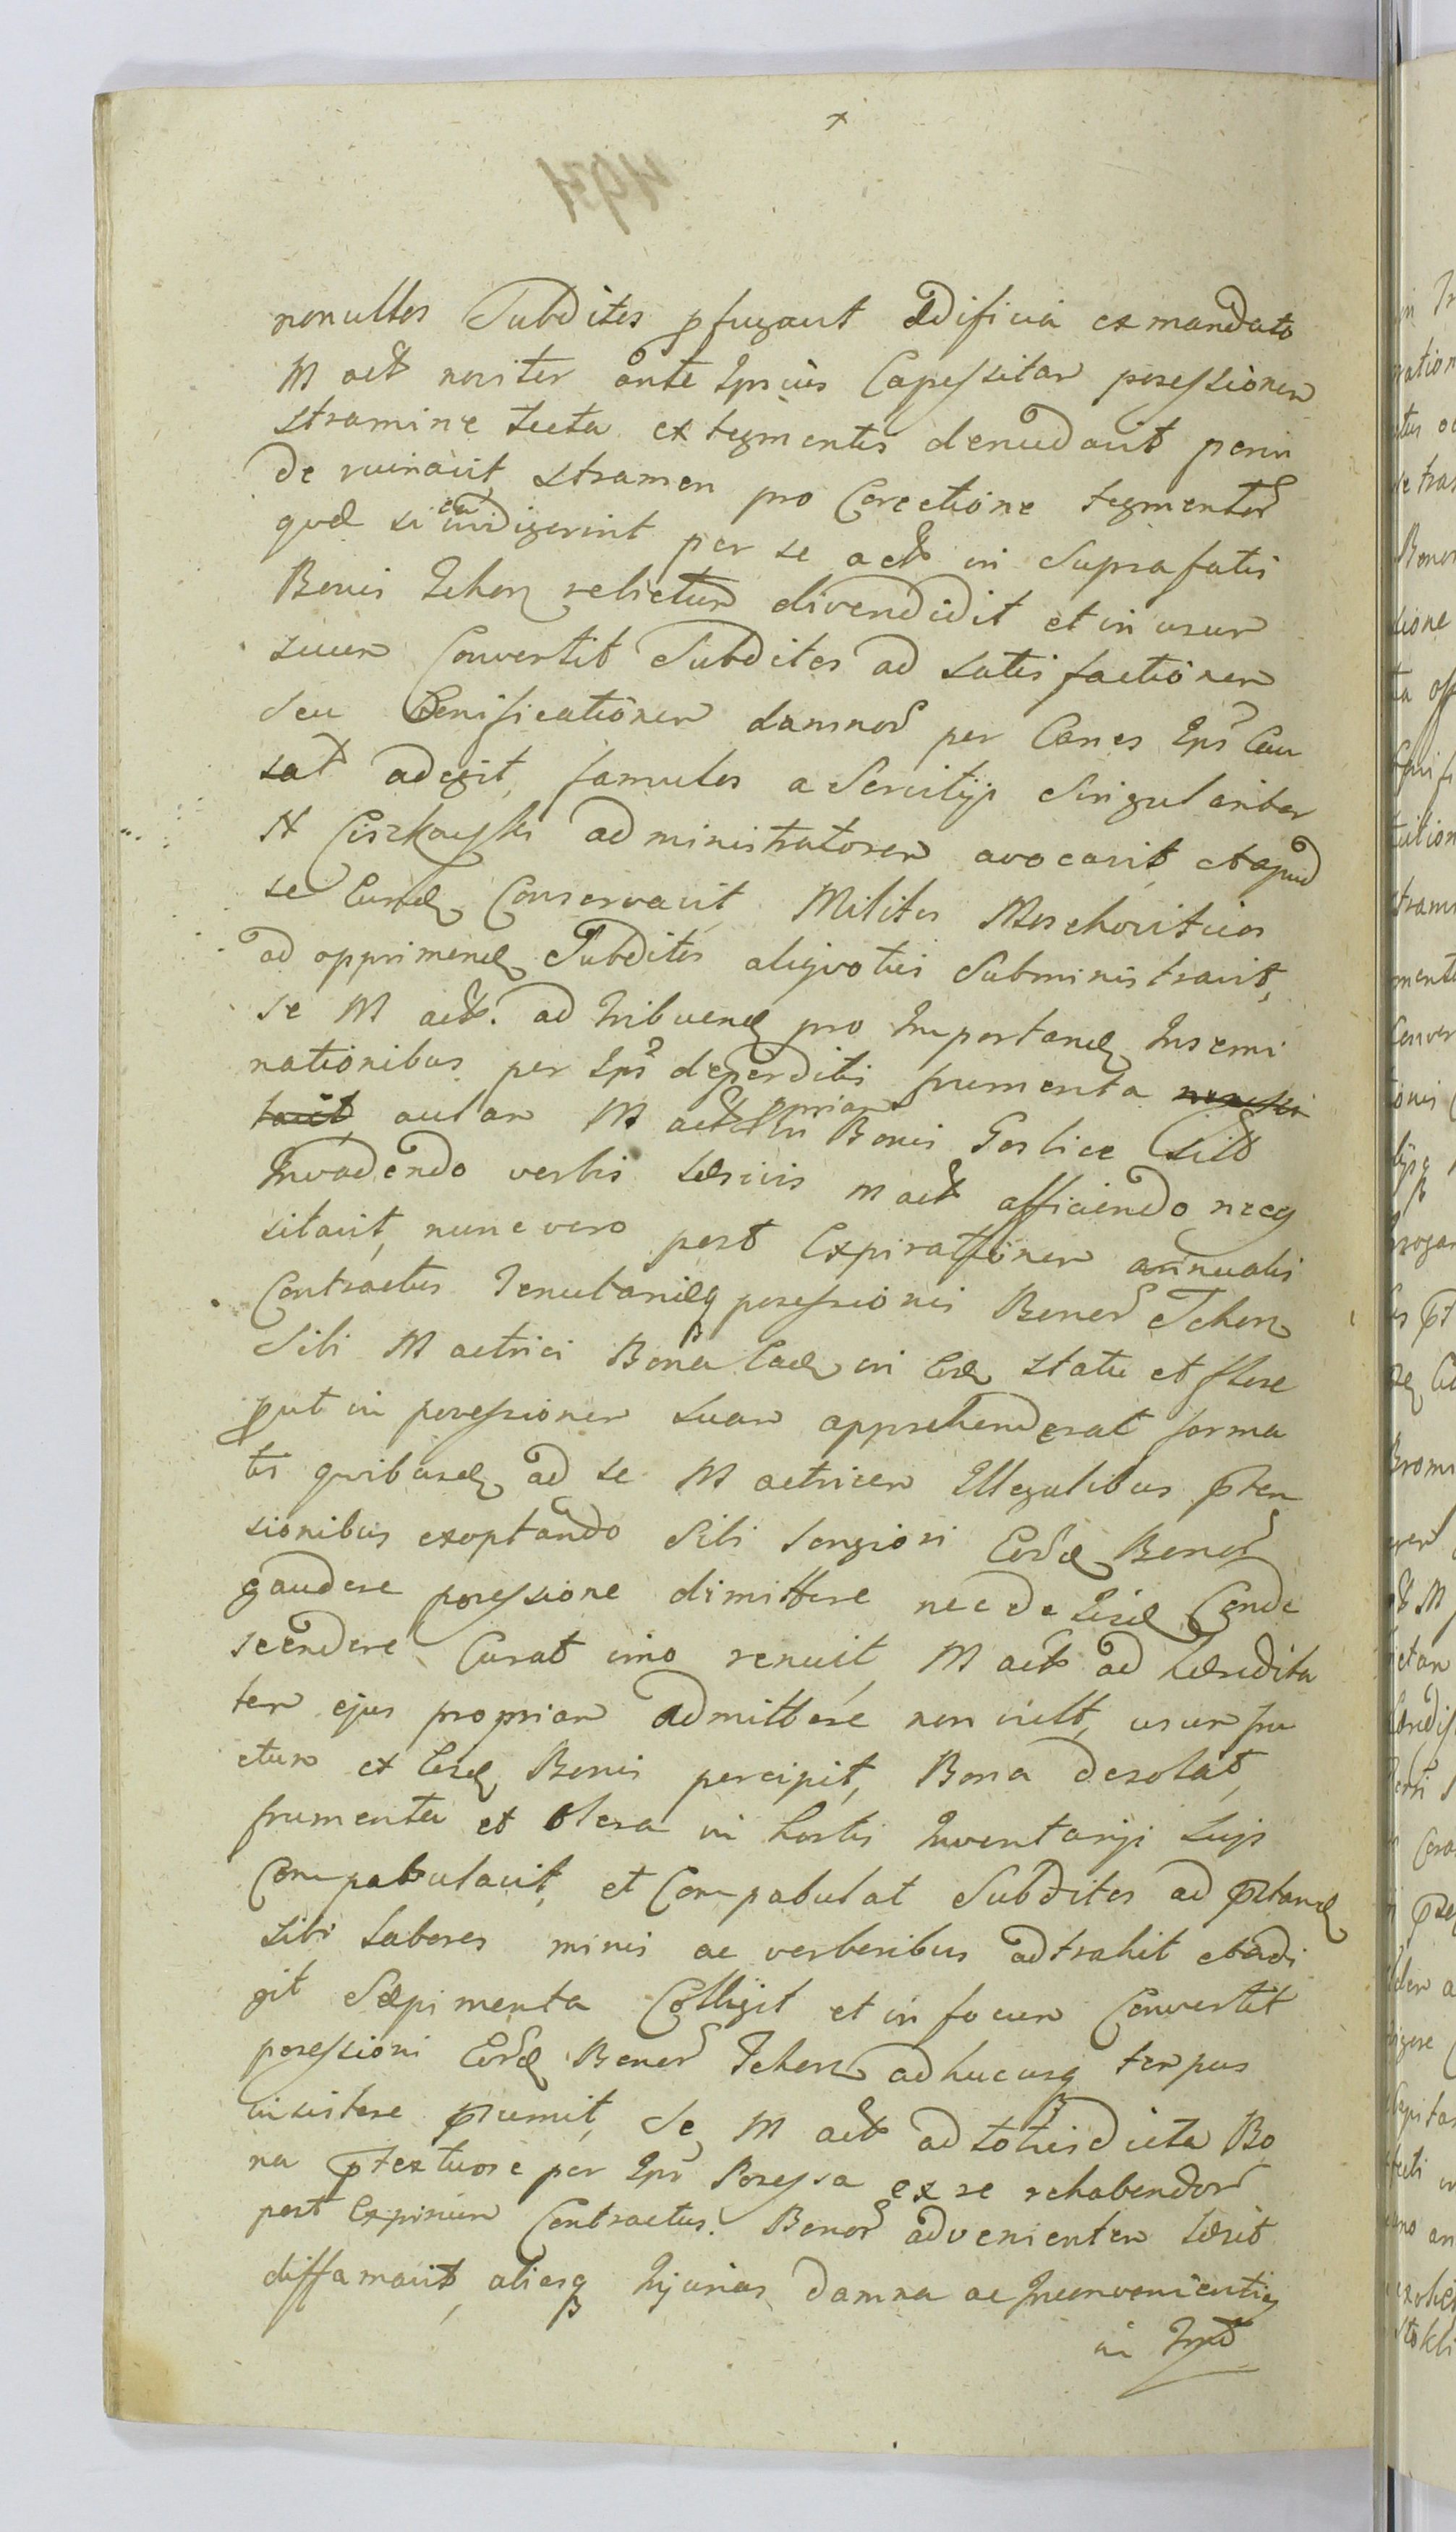 nonullos Subditos pfugavit ædificia ex mandato
M act noviter ante Ipsius Capessitam posessionem
stramine tecta ex tegmentis denudavit perin
de ruinavit, stramen pro Corectione tegmentor
quæ si ea indigerint per se act in Suprafatis
Bonis relictum divendidit et in usum
suum Convertit Subditos ad satisfactionem
seu Bonificationem damnor per Canes Ips Cau
sat adegit, famulos a Servitijs Singulariter
N administratorem avocavit, et apud
se Eund Conservavit, Milites Moschoviticos
ad opprimend Subditos aliqvoties Subministravit,
se M act. ad tribuend pro Importand Insemi
nationibus per Ips deperditis frumenta necessi
tavit, aulam M act ppriam in Bonis Gorlice sitt
Invadendo verbis læsivis M act afficiendo neces
sitavit, nunc vero post Expirationem annualis
Contractus Tenutariæq posessionis Bonor
Sibi M actrici Bona Ead in Eod statu et flore
put in posessionem suam apprehenderat forma
tis qvibusd ad se M actricem Illegalibus pten
sionibus exoptando Sibi longiori Eord Bonor
gaudere posessione dimittere nec de Iisd Conde
scendere Curat imo renuit, M act ad hæredita
tem ejus propriam admittere non vult, usumfru
ctum ex Eisd Bonis percipit, Bona desolat,
frumenta et olera in hortis Inventarijs suis
Compabulavit, et Compabulat Subditos ad pstand
sibi labores minis ac verberibus adtrahit et adi
git Sæpimenta Colligit et in focum Convertit
posessioni Eord Bonor adhucusq tempus
insistere psumit, Se M act ad toties dicta Bo
na ptextuose per Ips Posessa ex se rehabendor
post Expirium Contractus Bonor advenientem læsit
diffamavit, aliasq Injurias damna ac Inconvenientias
in